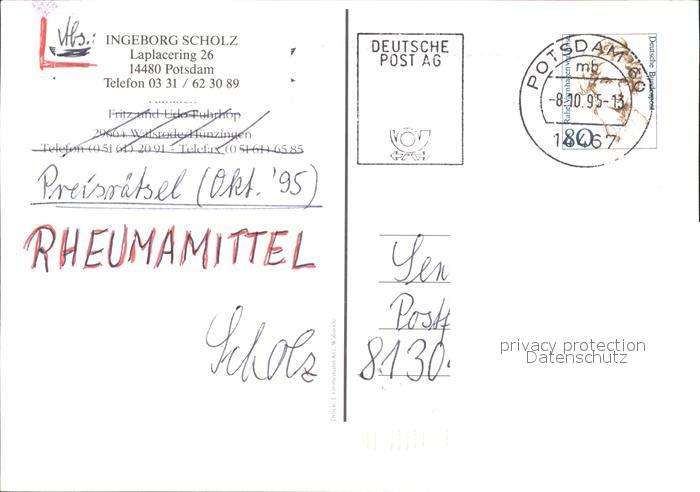 Abs.: INGEBORG SCHOLZ
Laplacering 26
14480 Potsdam
Telefon 03 31 / 62 30 89
Fritz und Udo Fuhrhop
29664 Walsrode-Hünzingen
Telefon (0 51 61) 20 91 - Telefax (0 51 61) 65 85
Preisrätsel (Okt. '95)
RHEUMAMITTEL
Scholz
DEUTSCHE
POST AG
POTSDAM
mb
-8.10.95-13
14467
80
Deutsche Bundespost
Sen
Postf
8130
privacy protection
Datenschutz